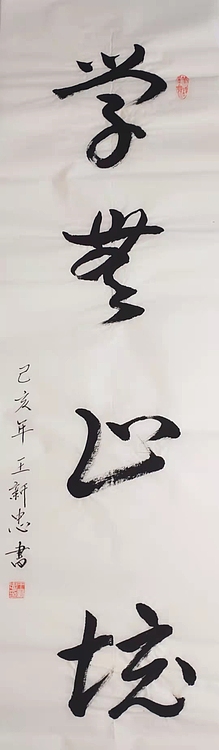 学無止境
己亥年王新忠書